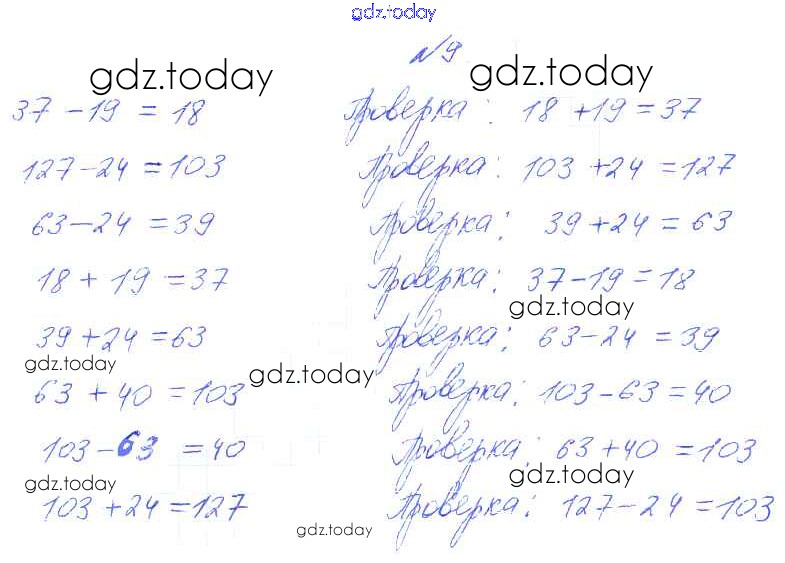 gdz.today
№9
gdz.today gdz.today
37 - 19 = 18 Проверка: 18 + 19 = 37
127 - 24 = 103 Проверка: 103 + 24 = 127
63 - 24 = 39 Проверка: 39 + 24 = 63
18 + 19 = 37 Проверка: 37 - 19 = 18
gdz.today
39 + 24 = 63 Проверка: 63 - 24 = 39
gdz.today gdz.today
63 + 40 = 103 Проверка: 103 - 63 = 40
103 - 63 = 40 Проверка: 63 + 40 = 103
gdz.today gdz.today
103 + 24 = 127 Проверка: 127 - 24 = 103
gdz.today